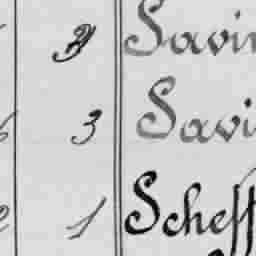 3 Savin
3 Savi
1 Scheff